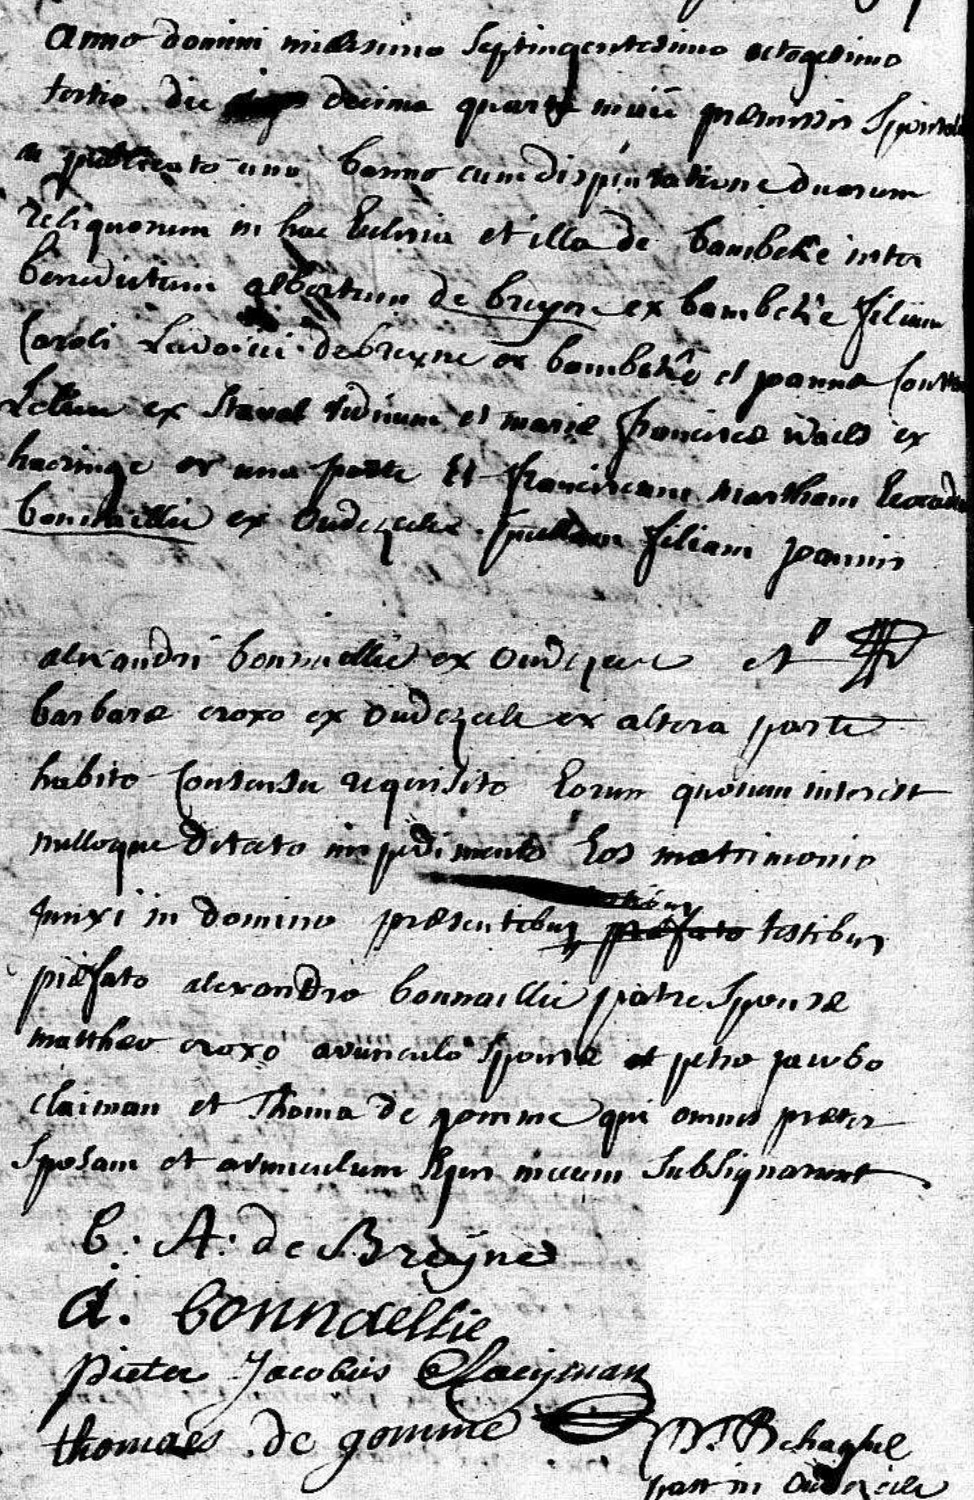 anno domini millesimo septingentesimo octogesimo
tertio die decima quarta maii præmissis sponsali
publicato uno banno cum dispensatione duorum
reliquorum in hac Eclesia et illa de bambeke inter
benedictum albertum de breyne ex bambeke filium
Caroli Ludovici debreyne ex bambeke et joannæ
ex Stavel viduum et mariæ franciscæ waels ex
haeringe ex una parte Et franciscam Martham
bonnaillie ex Oudezeele puellam filiam joannis
alexandri bonnaillie ex Oudezeele et
barbaræ croxo ex Oudezeele ex altera parte
habito Consensu requisito Eorum quorum interest
nulloque Detecto impedimento Eos matrimonio
junxi in domino præsentibus præfato testibus
præfato alexandro bonnaillie patre Sponsæ
mattheo croxo avunculo Sponsæ et petro jacobo
claiman et Thoma de gomme qui omnes præter
Sposam et avunculum Ejus mecum Subsignarunt
b: A: de Breÿne
A. bonnaellie
pieter Jacobus Claeijman
thomaes de gomme
Behaghel
past in Oudezeele